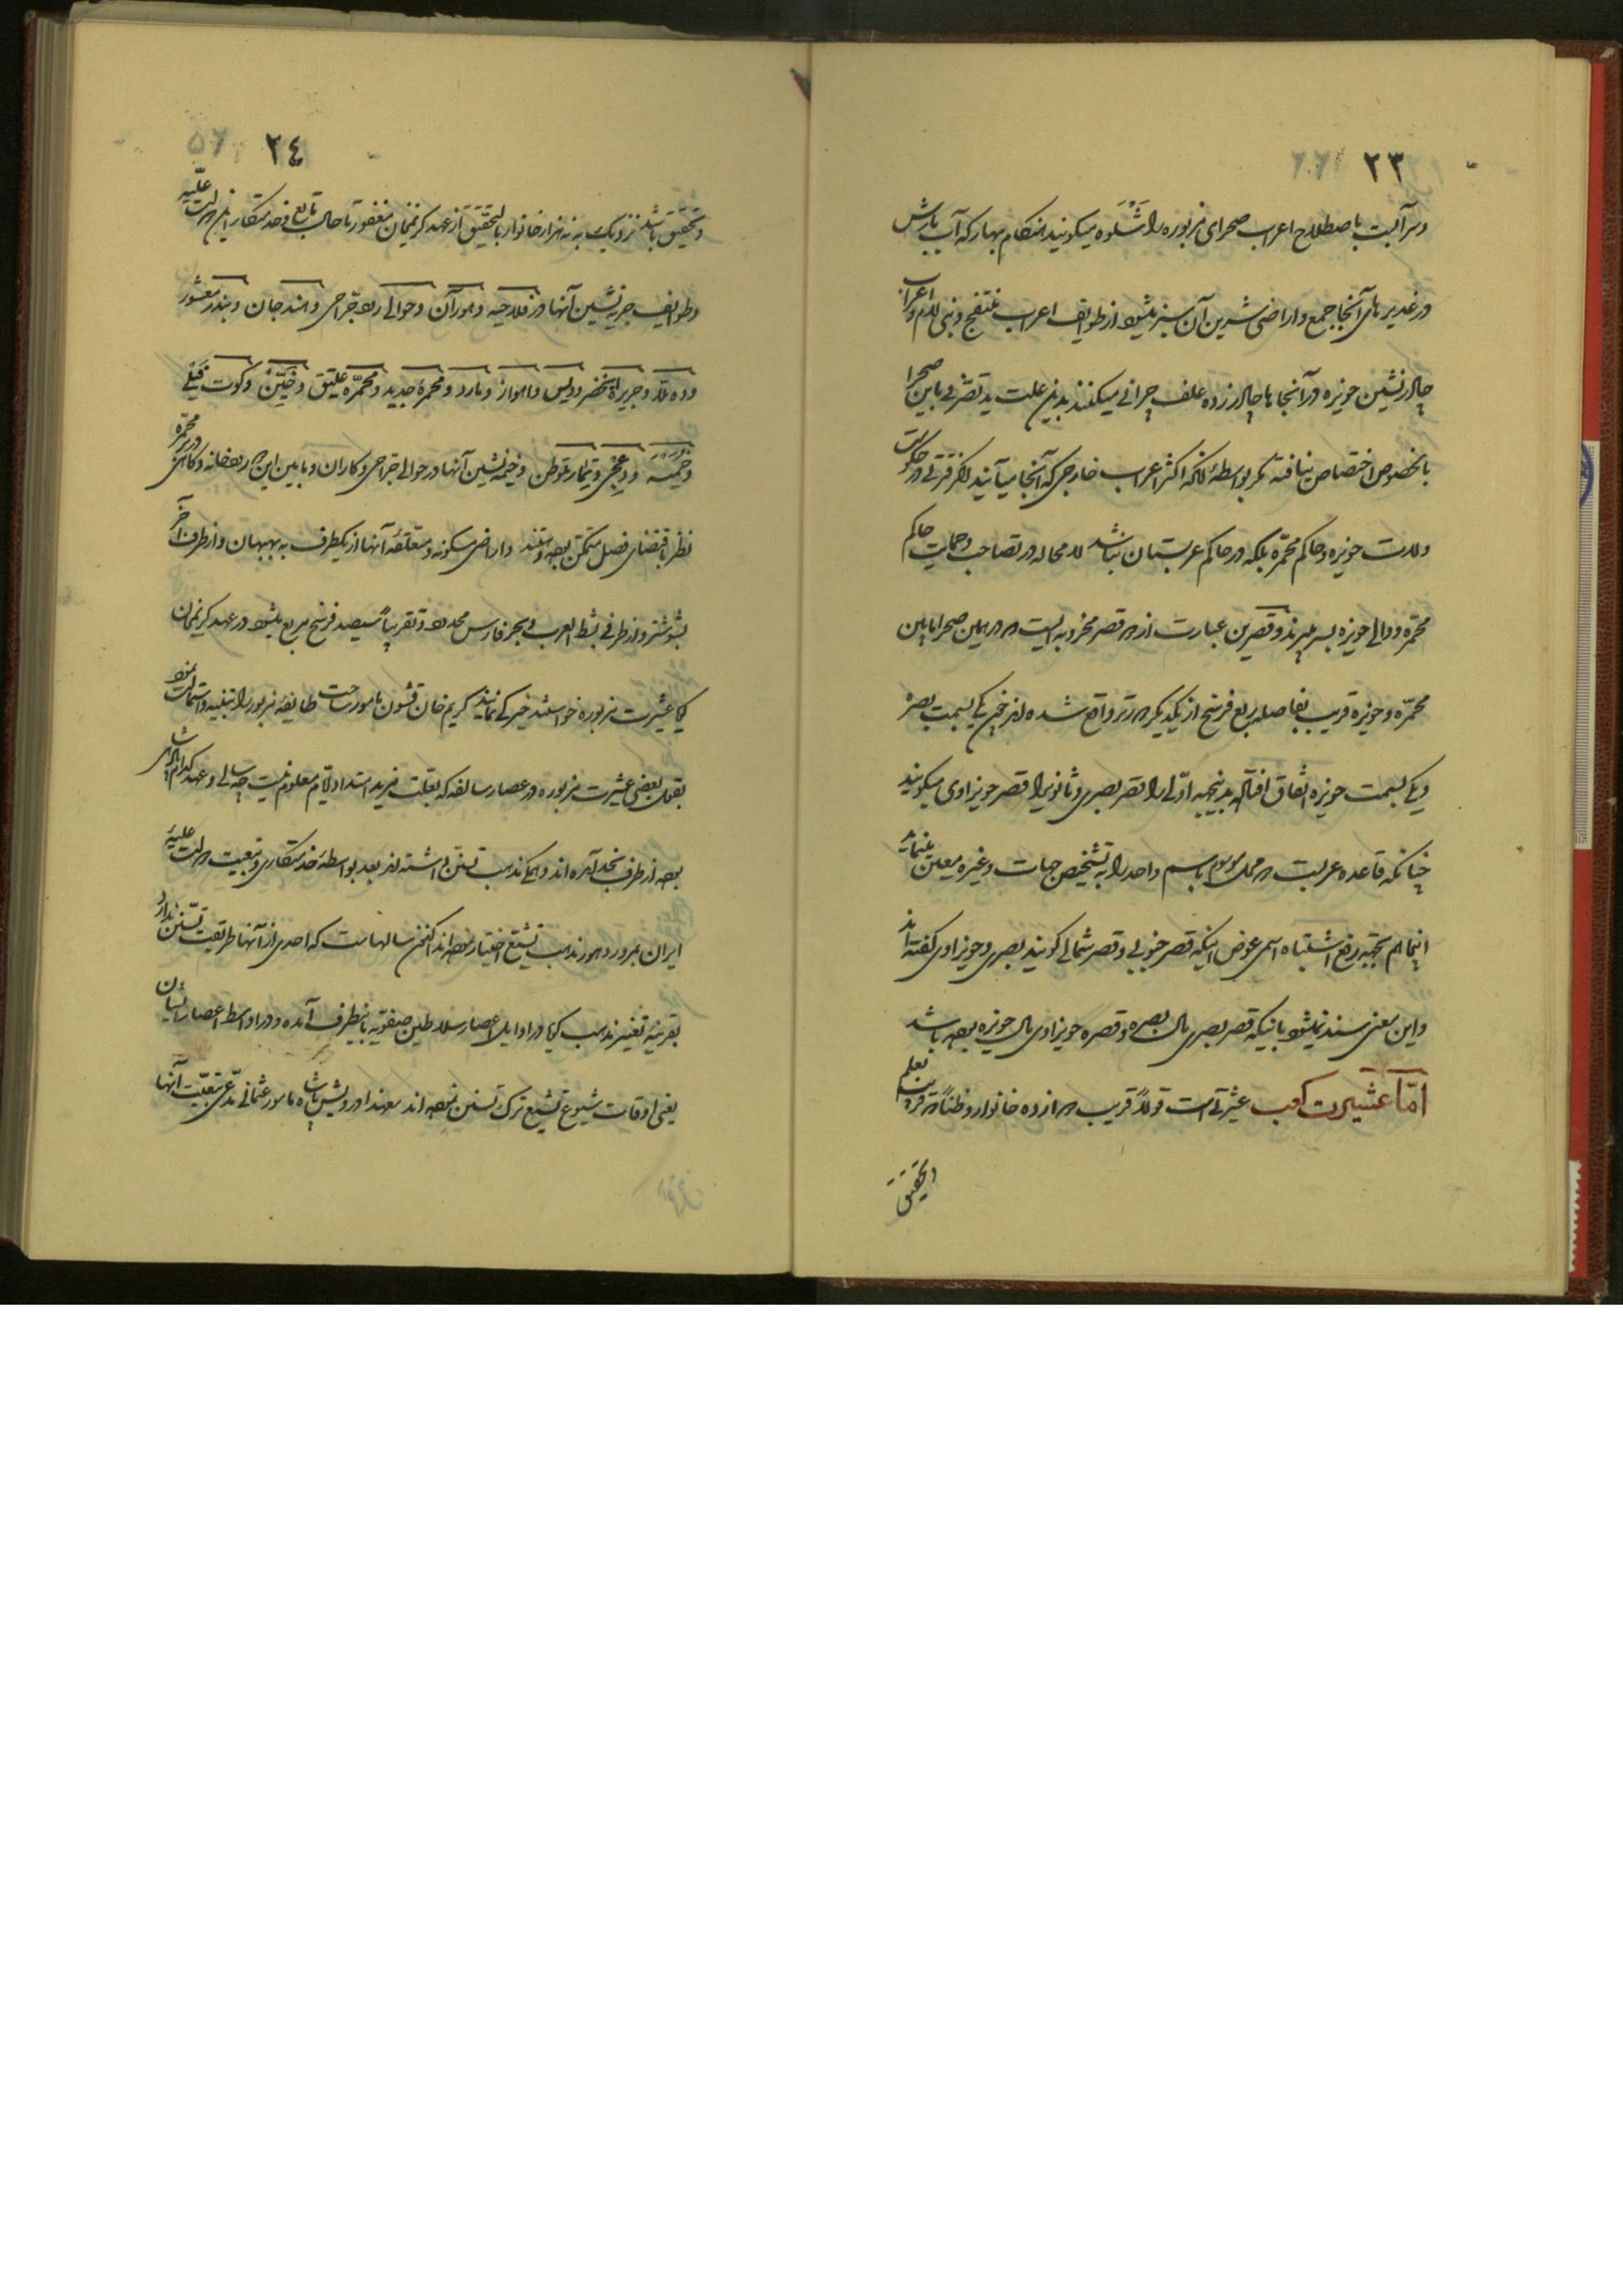 ٢٣
وسرآلبت باصطلاح اعراب صحرای مزبوره را شَلْوَه میکویند هنکام بهار که آب بارش
در غدیرهای آنجا جمع و اراضی شیرین آن سبز میشود از طوایف اعراب منتفج و بنی لام و اعراب
چادرنشین حویزه در آنجاها چادر زده علف چرانی میکنند بدین علت ید تصرّفی باین صحرا
بالخصوص اختصاص نیافته مکر بواسطهٔ آنکه اکثر اعراب خارجی که آنجا میآیند اکر فترتی در حکومت
ولات حویزه و حاکم محمّره بلکه در حاکم عربستان نباشد لامحاله در تصاحب و حمایت حاکم
محمّره و والی حویزه بسر میبرند و قصرین عبارت از دو قصر مخروبه ایست در همین صحرا مابین
محمّره و حویزه قریب بفاصله ربع فرسخ از یکدیکر دورتر واقع شده اند یکی بسمت بصره
و یکی بسمت حویزه اتّفاق افتاده بدینجهة اوّلی را قصر بصری و ثانویرا قصر حویزاوی میکویند
چنانکه قاعده عربست دو محل موسوم باسم واحد را به تشخیص جهات و غیره معین مینمایند
اینهم بجهة رفع اشتباه اسمی عوض اینکه قصر جنوبی و قصر شمالی کویند بصری و حویزاوی کفته اند
و این معنی سند نمیشود باینکه قصر بصری مال بصره و قصره حویزاوی مال حویزه بوده باشد
امّا عشیرت کعب عشیرتی است قولاً قریب دوازده خانوار و ظناً
والتحقیق
٢٤
و تحقیق باشد نزدیک به نه هزار خانوار بالتحقیق از عهد کریمخان مغفور تا حال تابع و خدمتکار این دولت علّیه
و طوایف جزیه نشین آنها در فلاحیه و هورآن و حوالی رود جرّاحی و هندجان و بندر معشور
و ده ملّا و جزیرة الخضر و ویس و اهواز و مارد و محمرهٔ جدید و محمّره عتیق و خیّین و کوت فیلی
و تمار متوطن و خیمه نشین آنها در حوالی جراحی و کاران و مابین این دو رودخانه و کاهی در بر محمّره
نظر باقتضای فصل متمکن بوده و هستند و اراضی مسکونه و متعلقهٔ آنها از یکطرف به بهبهان و از طرف آخر
بشوشتر و از طرفی بشط العرب و بحر فارس محدود و تقریباً سیصد فرسخ مربع میشود در عهد کریمخان
عشیرت مزبوره خواستند خیرکی نمایند کریم خان قشون مامور ساخت طایفهٔ مزبور را تنبیه و استمالت نمود
بقول بعضی عشیرت مزبوره در عصار سالفه که بعلّت مزید امتداد ایّام معلوم نیست چه سالی و عهد کدام پادشاه
بوده از طرف نجد آمده اند و همکی مذهب تسنّن داشته اند بعد بواسطهٔ خدمتکاری و تبعیت دولت علیّه
ایران بمرور دهور مذهب تشیّع اختیار نموده اند اکنون سالهاست که احدی از آنها طریقت تسنّن ندارد
بقرینهٔ تغییر مذهب کویا در اوایل اعصار سلاطین صفویّه باینطرف آمده و در اواسط اعصار ایشان
یعنی اوقات شیوع تشیّع ترک تسنن نموده اند معهذا درویش پاشا مامور عثمانی مدّعی تبعیّت آنها